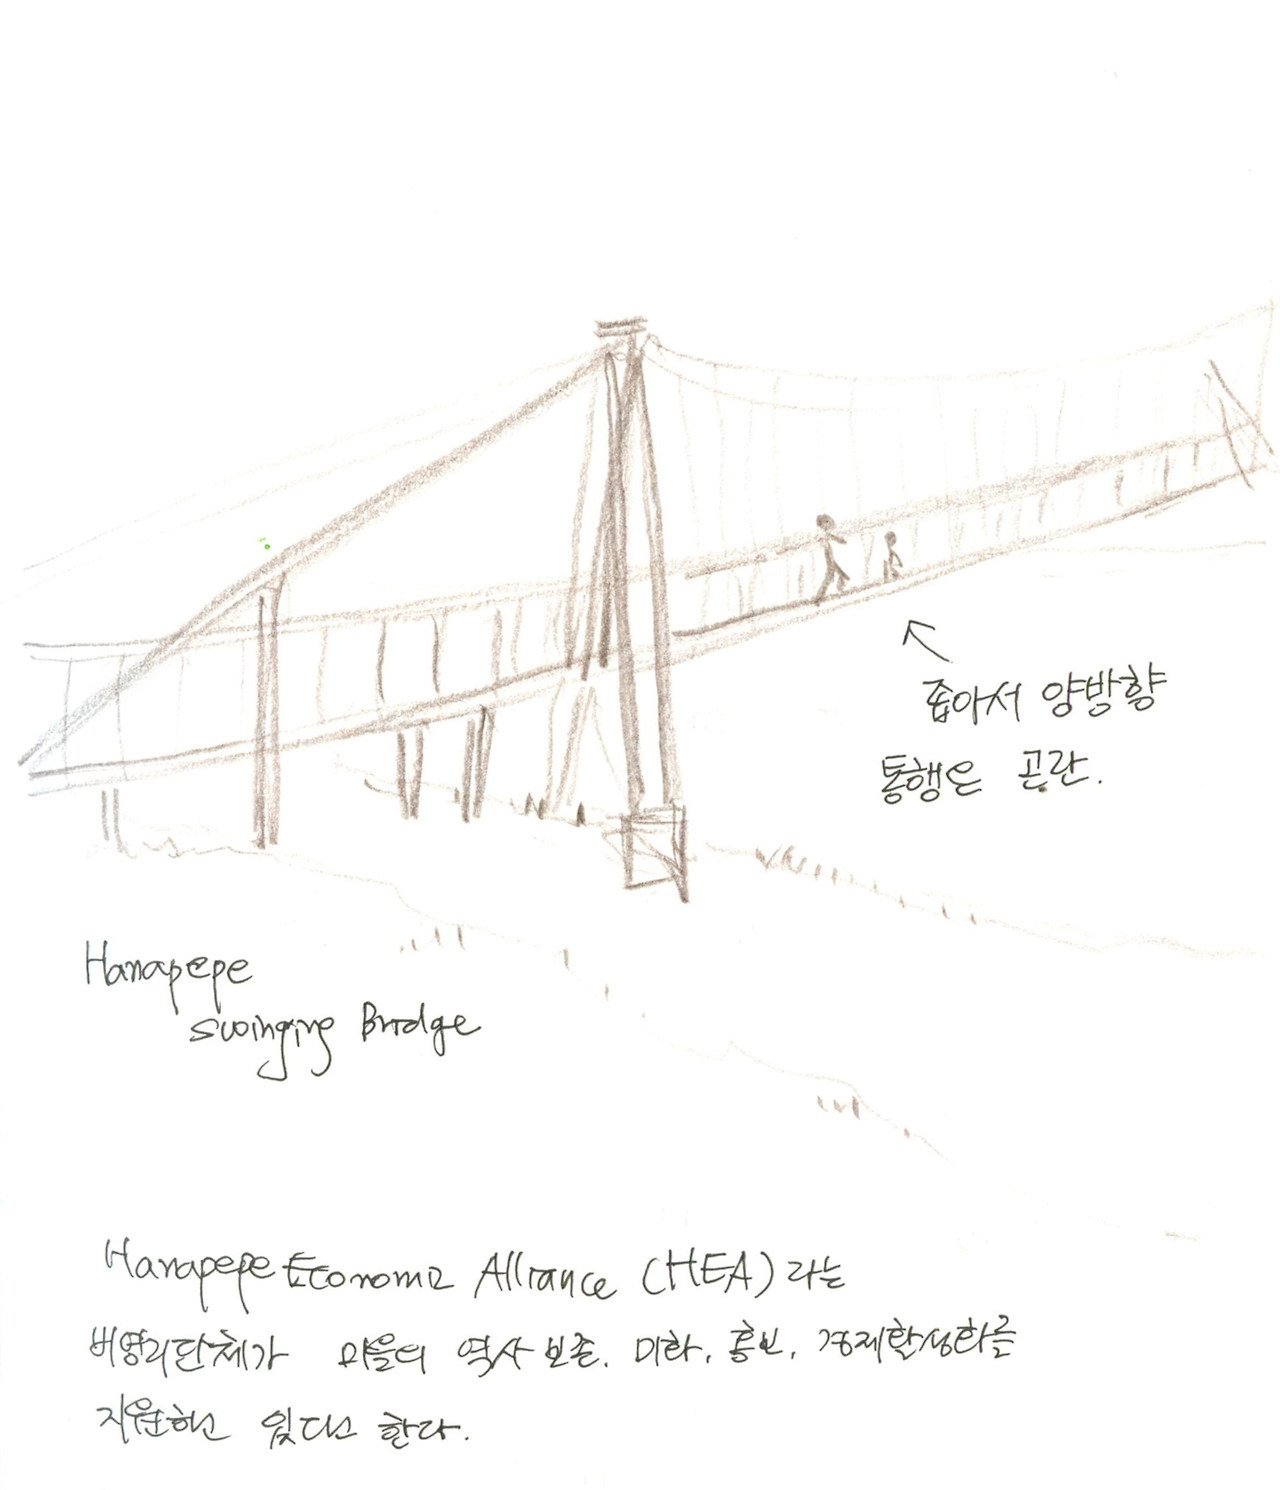 좁아서 양방향
통행은 곤란.
Hanapepe
swinging Bridge
Hanapepe Economic Alliance (HEA)라는
비영리단체가 마을의 역사 보존. 미화, 홍보, 경제활성화를
지원하고 있다고 한다.